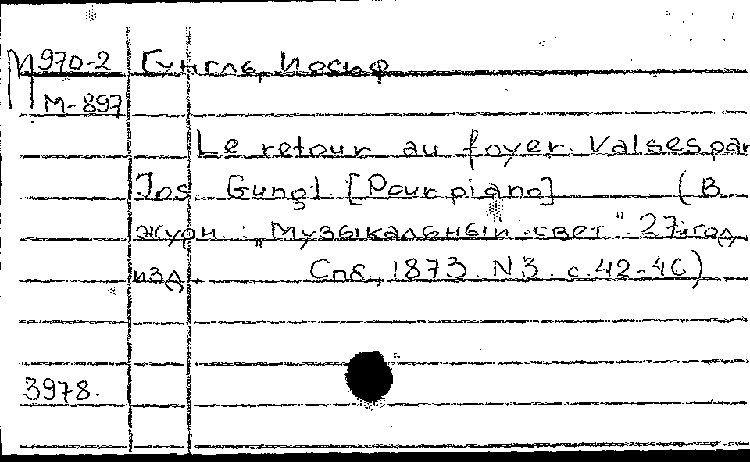 М 970-2 Гунгль, Иосиф
М-897
Le retour au foyer. Valses par
Jos Gungl [Pour piano] (В
журн: „Музыкальный свет" 27й год
изд. Спб, 1873. N3. с.42-46)
3978.